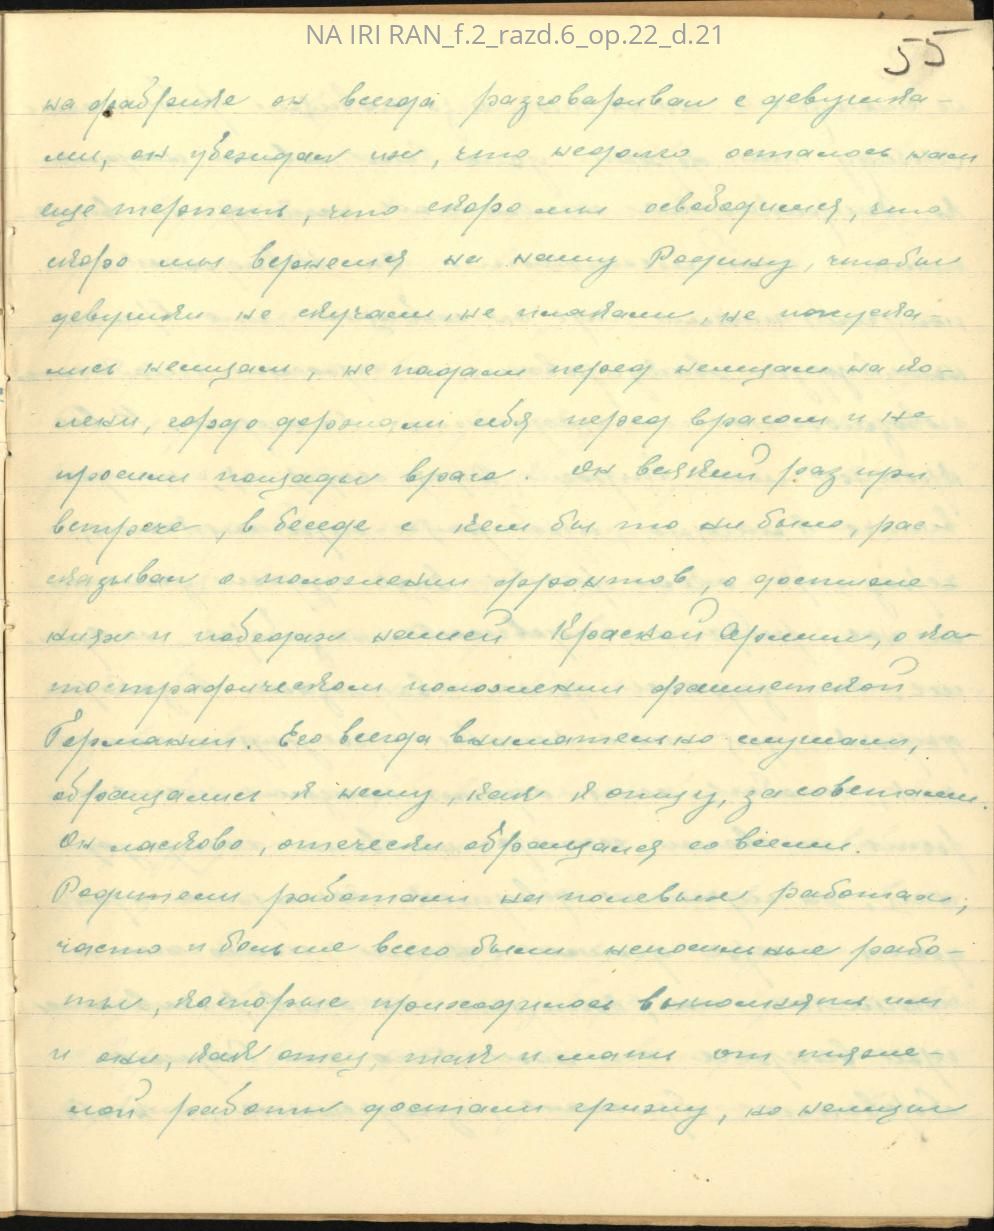 NA IRI RAN_f.2_razd.6_op.22_d.21
55
на фабрике он всегда разговаривал с девушка-
ми, он убеждал их, что недолго осталось нам
еще терпеть, что скоро мы освободимся, что
скоро мы вернемся на нашу Родину, чтобы
девушки не скучали, не плакали, не покуска-
лись немцам, не падали перед немцам на ко-
лени, гордо держали себя перед врагом и не
просили пощады врага. Он всякий раз при
встрече, в беседе с кем бы то ни было, рас-
сказывал о положении фронтов, о достиже-
ниях и победах нашей Красной Армии, о ка-
тострафическом положении фашистской
Германии. Его всегда внимательно слушали,
обращались к нему, как к отцу, за советами.
Он ласково, отечески обращался со всеми.
Родители работали на полевых работах,
часто и больше всего были непосильные рабо-
ты, которые приходилось выполнять им
и они, как отец, так и мать от тяже-
лой работы достали грижу, но немцы